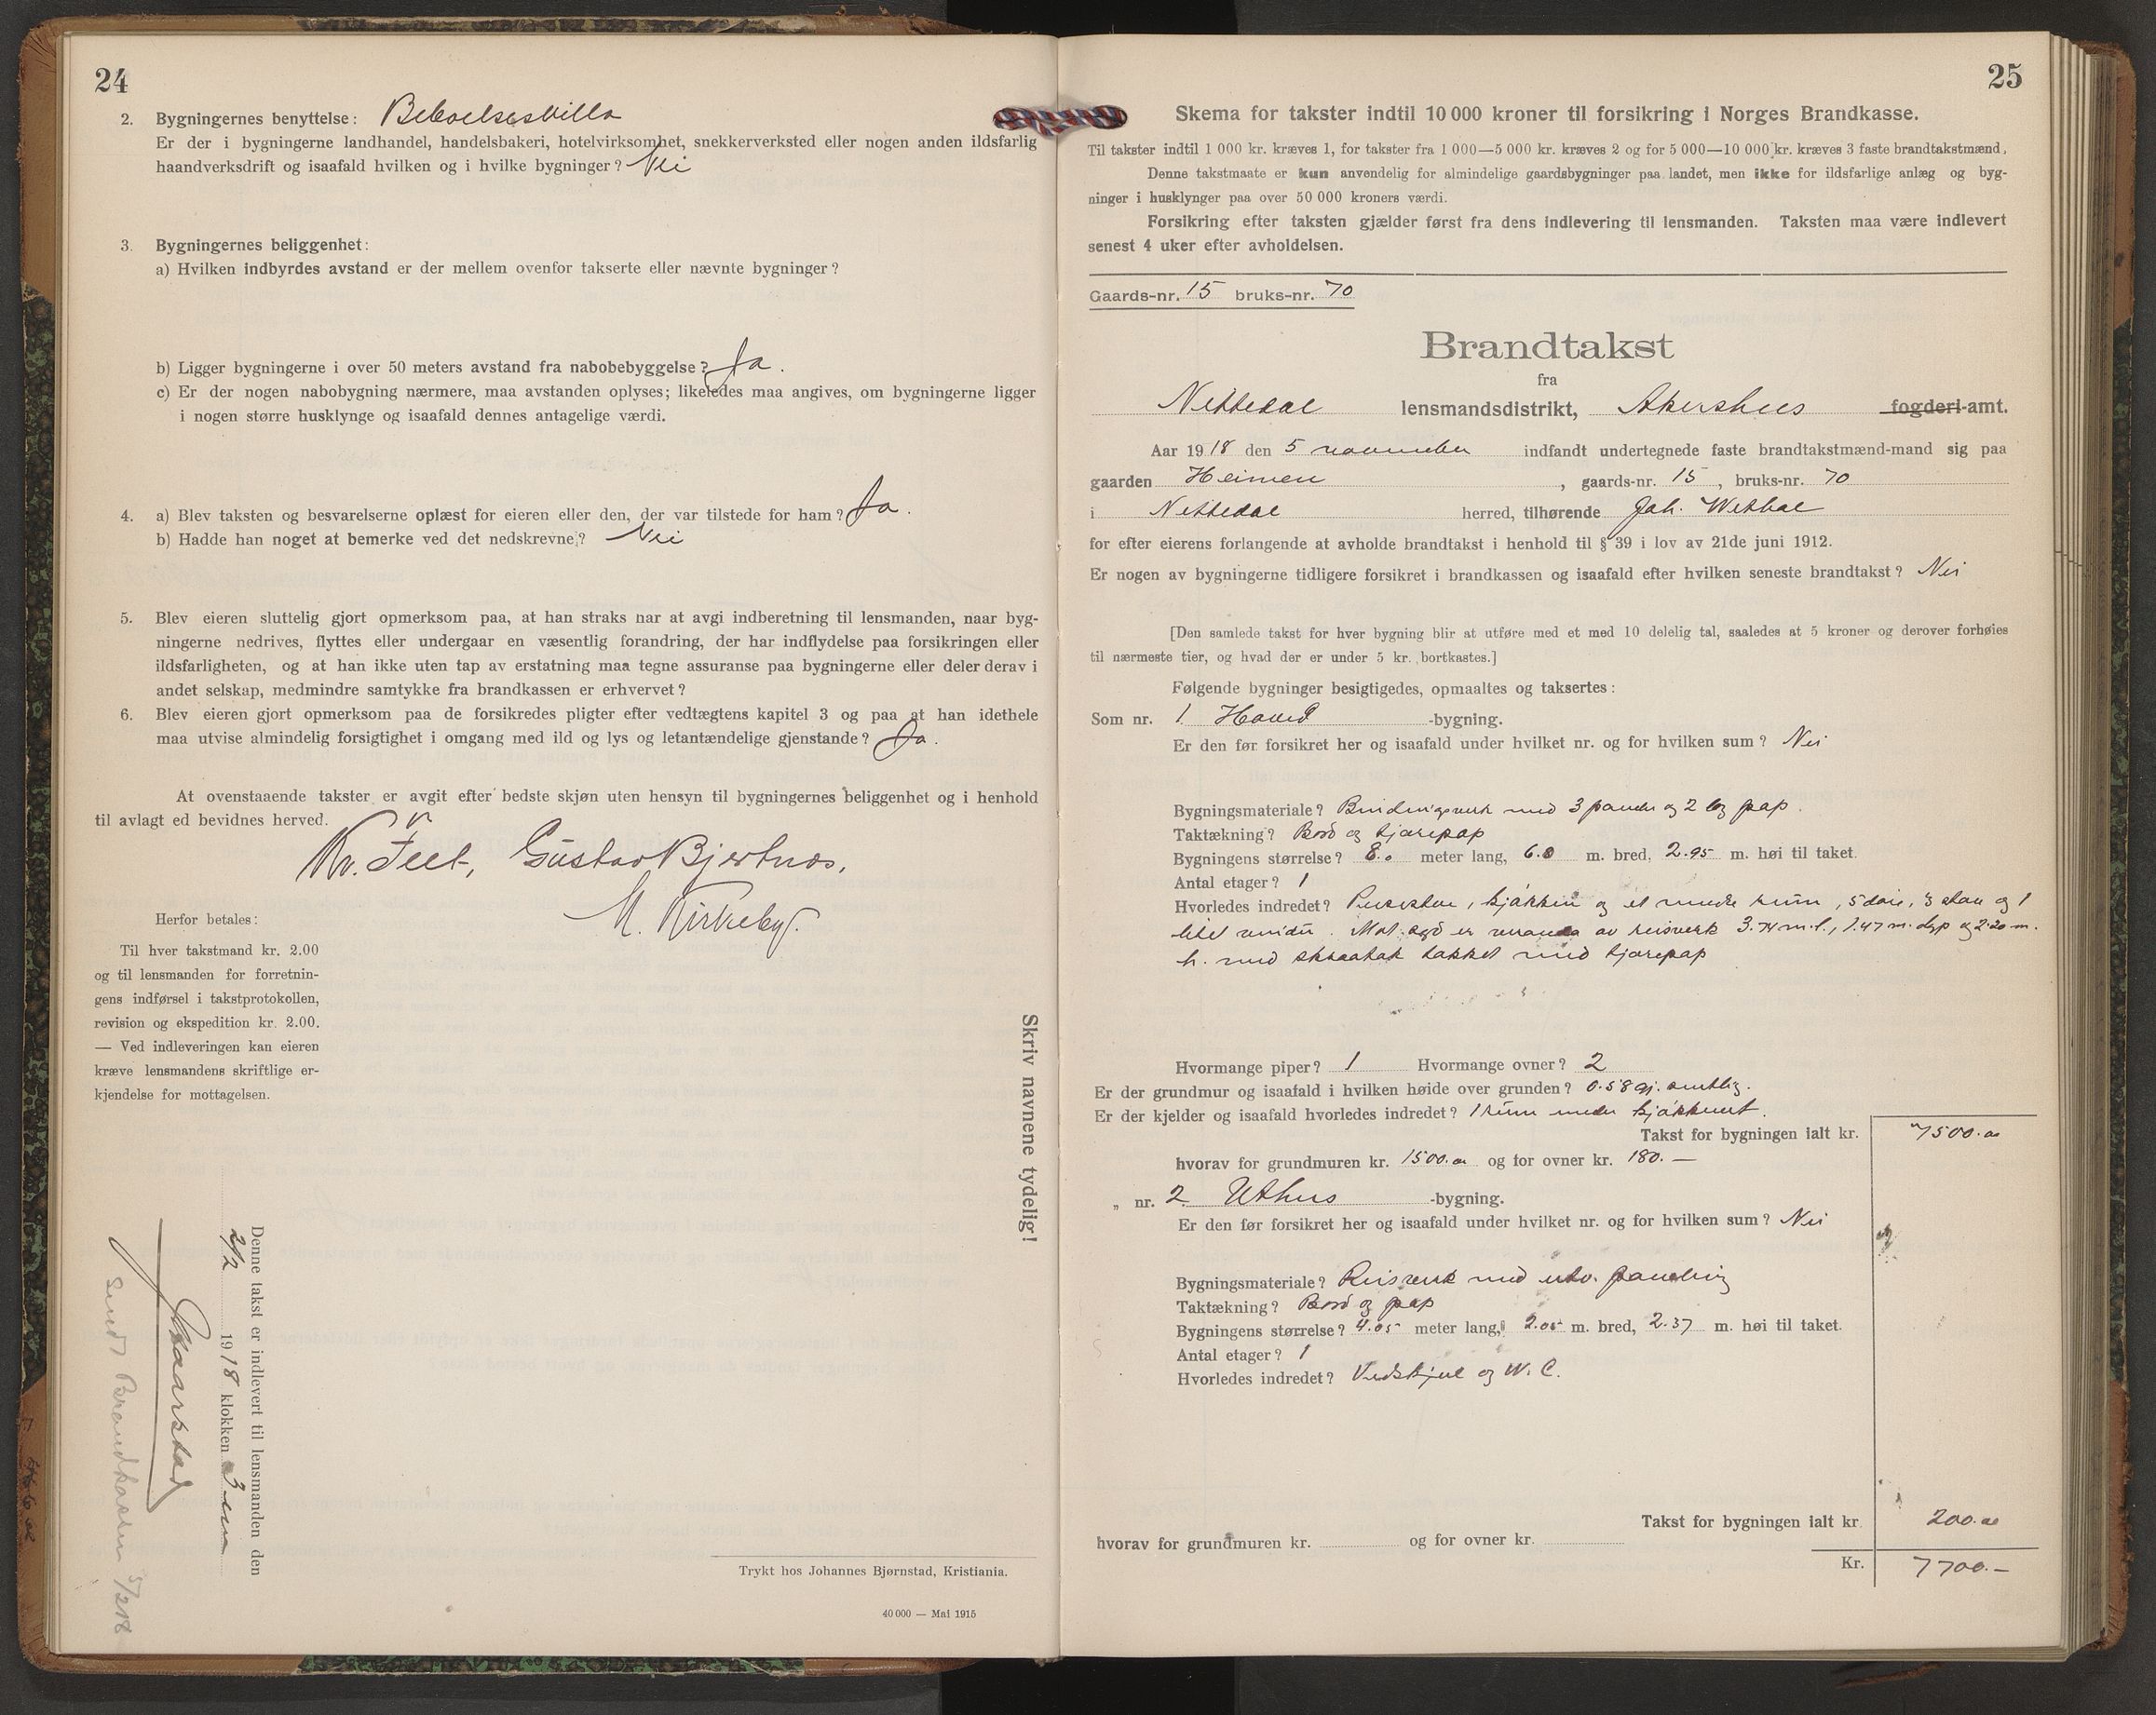 24
2. Bygningernes benyttelse: Beboelsesvilla
Er der i bygningerne landhandel, handelsbakeri, hotelvirksomhet, snekkerverksted eller nogen anden ildsfarlig
haandverksdrift og isaafald hvilken og i hvilke bygninger? Nei
3. Bygningernes beliggenhet:
a) Hvilken indbyrdes avstand er der mellem ovenfor takserte eller nævnte bygninger?
b) Ligger bygningerne i over 50 meters avstand fra nabobebyggelse? Ja.
c) Er der nogen nabobygning nærmere, maa avstanden oplyses; likeledes maa angives, om bygningerne ligger
i nogen større husklynge og isaafald dennes antagelige værdi.
4. a) Blev taksten og besvarelserne oplæst for eieren eller den, der var tilstede for ham? Ja.
b) Hadde han noget at bemerke ved det nedskrevne? Nei
5. Blev eieren sluttelig gjort opmerksom paa, at han straks nar at avgi indberetning til lensmanden, naar byg-
ningerne nedrives, flyttes eller undergaar en væsentlig forandring, der har indflydelse paa forsikringen eller
ildsfarligheten, og at han ikke uten tap av erstatning maa tegne assuranse paa bygningerne eller deler derav i
andet selskap, medmindre samtykke fra brandkassen er erhvervet?
6. Blev eieren gjort opmerksom paa de forsikredes pligter efter vedtægtens kapitel 3 og paa at han idethele
maa utvise almindelig forsigtighet i omgang med ild og lys og letantændelige gjenstande? Ja.
At ovenstaaende takster er avgit efter bedste skjøn uten hensyn til bygningernes beliggenhet og i henhold
til avlagt ed bevidnes herved.
Kr. Feet, Gustav Bjertnæs,
M. Kirkeby.
Herfor betales:
Til hver takstmand kr. 2.00
og til lensmanden for forretnin-
gens indførsel i takstprotokollen,
revision og ekspedition kr. 2.00.
— Ved indleveringen kan eieren
kræve lensmandens skriftlige er-
kjendelse for mottagelsen.
Skriv navnene tydelig!
Denne takst er indlevert til lensmanden den
2/12 1918 klokken 3 em
Sendt Brandkassen 5/12 18
Trykt hos Johannes Bjørnstad, Kristiania.
40 000 — Mai 1915
25
Skema for takster indtil 10 000 kroner til forsikring i Norges Brandkasse.
Til takster indtil 1 000 kr. kræves 1, for takster fra 1 000—5 000 kr. kræves 2 og for 5 000—10 000 kr. kræves 3 faste brandtakstmænd,
Denne takstmaate er kun anvendelig for almindelige gaardsbygninger paa landet, men ikke for ildsfarlige anlæg og byg-
ninger i husklynger paa over 50 000 kroners værdi.
Forsikring efter taksten gjælder først fra dens indlevering til lensmanden. Taksten maa være indlevert
senest 4 uker efter avholdelsen.
Gaards-nr. 15 bruks-nr. 70
Brandtakst
fra
Nittedal lensmandsdistrikt, Akershus fogderi-amt.
Aar 1918 den 5 november indfandt undertegnede faste brandtakstmænd-mand sig paa
gaarden Heimen, gaards-nr. 15, bruks-nr. 70
i Nittedal herred, tilhørende Joh. Wethal
for efter eierens forlangende at avholde brandtakst i henhold til § 39 i lov av 21de juni 1912.
Er nogen av bygningerne tidligere forsikret i brandkassen og isaafald efter hvilken seneste brandtakst? Nei
[Den samlede takst for hver bygning blir at utføre med et med 10 delelig tal, saaledes at 5 kroner og derover forhøies
til nærmeste tier, og hvad der er under 5 kr. bortkastes.]
Følgende bygninger besigtigedes, opmaaltes og taksertes:
Som nr. 1 Hoved -bygning.
Er den før forsikret her og isaafald under hvilket nr. og for hvilken sum? Nei
Bygningsmateriale? Bindingsverk med 3 panele og 2 lag pap.
Taktækning? Bord og tjærepap
Bygningens størrelse? 8.0 meter lang, 6.0 m. bred, 2.95 m. høi til taket.
Antal etager? 1
Hvorledes indredet? Peisestue, kjøkken og et mindre rum, 5 døre, 3 store og 1
litet vindu. Mot syd er veranda av reisverk 3.74 m. l., 1.47 m. dyp og 2.20 m.
h. med skraatak tækket med tjærepap
Hvormange piper? 1 Hvormange ovner? 2
Er der grundmur og isaafald i hvilken høide over grunden? 0.58 gj.snitlig.
Er der kjelder og isaafald hvorledes indredet? 1 rum under kjøkkenet.
Takst for bygningen ialt kr. 7500.00
hvorav for grundmuren kr. 1500.00 og for ovner kr. 180.—
„ nr. 2 Uthus -bygning.
Er den før forsikret her og isaafald under hvilket nr. og for hvilken sum? Nei
Bygningsmateriale? Reisverk med utv. paneling
Taktækning? Bord og pap
Bygningens størrelse? 4.05 meter lang, 2.05 m. bred, 2.37 m. høi til taket.
Antal etager? 1
Hvorledes indredet? Vedskjul og W. C.
Takst for bygningen ialt kr. 200.00
hvorav for grundmuren kr. og for ovner kr.
Kr. 7700.—